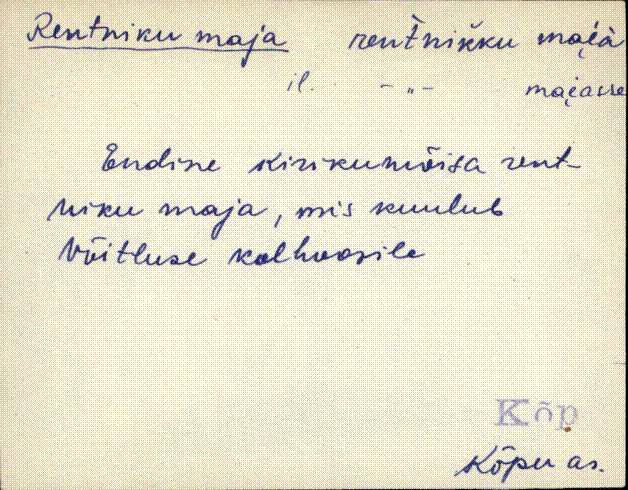 Rentniku maja rentnikku maja
il. -"- majasse
Endine kirikumõisa rent-
niku maja, mis kuulub
Võitluse kolhoosile
Kõp
Kõpu as.